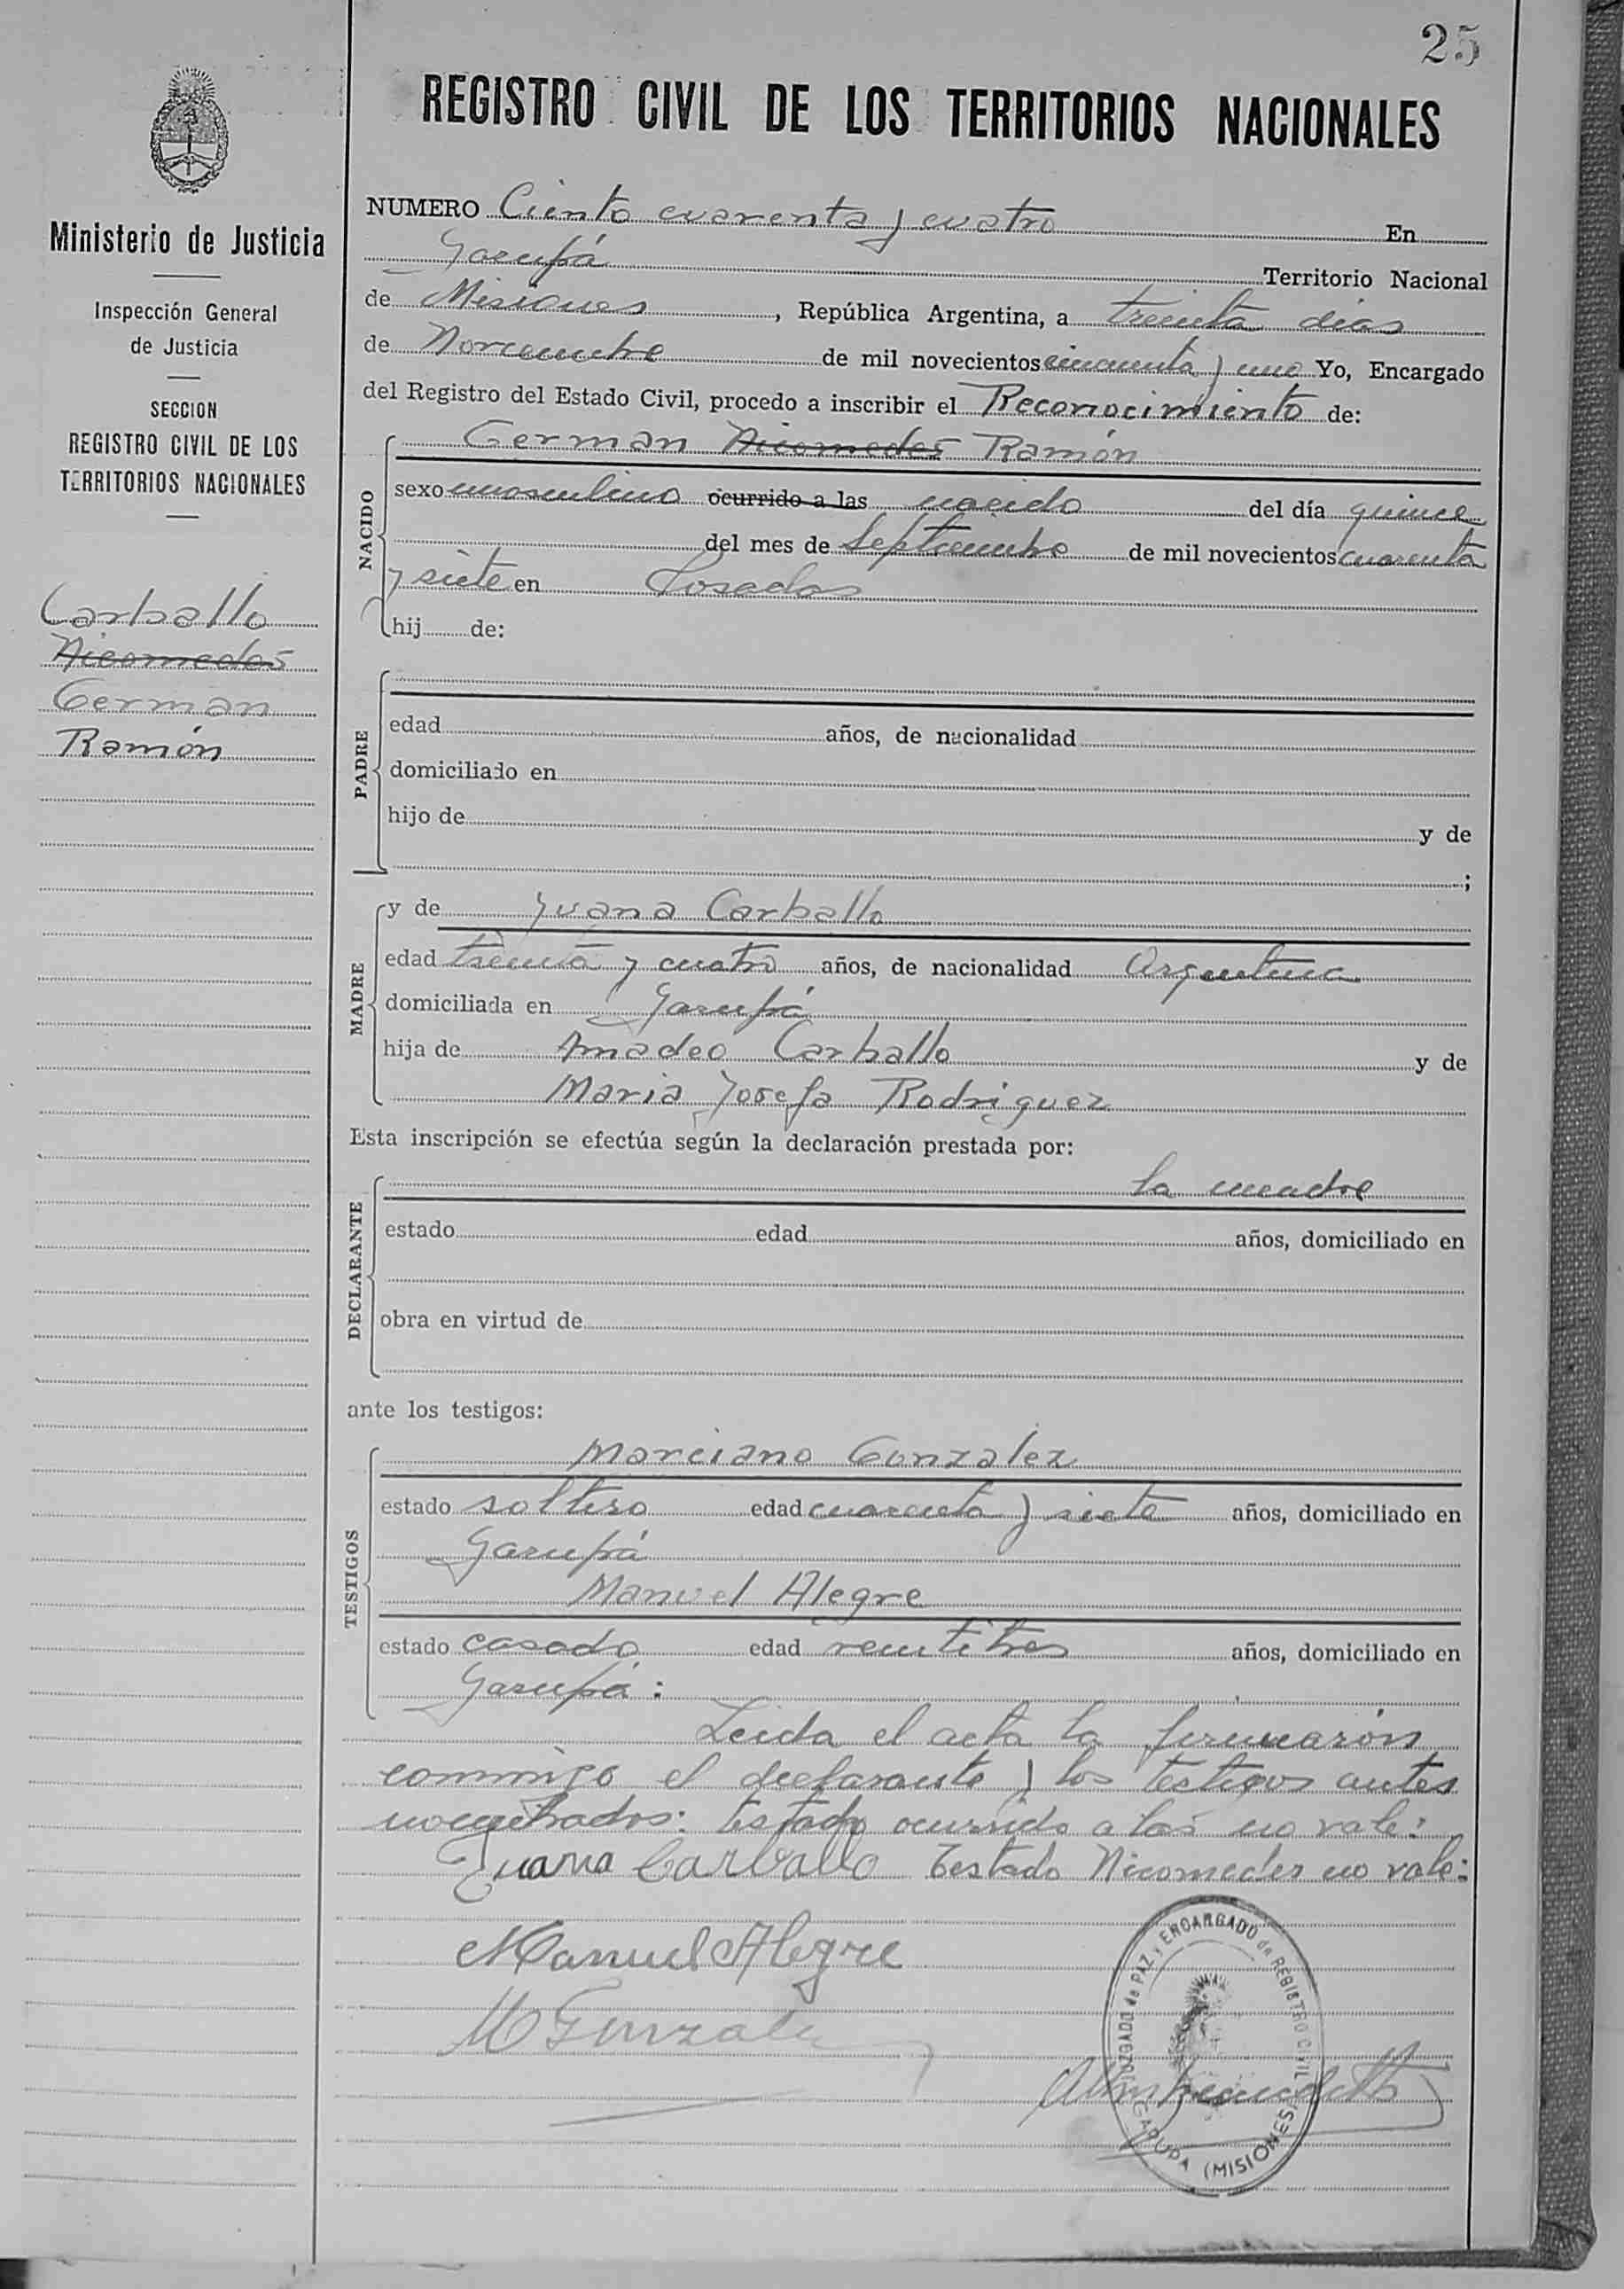 25
REGISTRO CIVIL DE LOS TERRITORIOS NACIONALES
Ministerio de Justicia
Inspección General
de Justicia
SECCION
REGISTRO CIVIL DE LOS
TERRITORIOS NACIONALES
Carballo
Nicomedes
German
Ramón
NUMERO Ciento cuarenta y cuatro En
Garupá Territorio Nacional
de Misiones, República Argentina, a treinta días
de Noviembre de mil novecientos cincuenta y uno Yo, Encargado
del Registro del Estado Civil, procedo a inscribir el Reconocimiento de:
NACIDO
German Nicomedes Ramón
sexo masculino ocurrido a las nacido del día quince
del mes de Septiembre de mil novecientos cuarenta
y siete en Posadas
hij de:
PADRE
edad años, de nacionalidad
domiciliado en
hijo de y de
;
MADRE
y de Juana Carballo
edad treinta y cuatro años, de nacionalidad Argentina
domiciliada en Garupá
hija de Amadeo Carballo y de
Maria Josefa Rodriguez
Esta inscripción se efectúa según la declaración prestada por:
DECLARANTE
la madre
estado edad años, domiciliado en
obra en virtud de
ante los testigos:
TESTIGOS
Marciano Gonzalez
estado soltero edad cuarenta y siete años, domiciliado en
Garupá
Manuel Alegre
estado casado edad veintitres años, domiciliado en
Garupá:
Leida el acta la firmarón
conmigo el declarante y los testigos antes
nombrados: testado ocurrido a las no vale:
Juana Carballo Testado Nicomedes no vale:
Manuel Alegre
M Gonzalez
JUZGADO de PAZ y ENCARGADO de REGISTRO CIVIL
GARUPA (MISIONES)